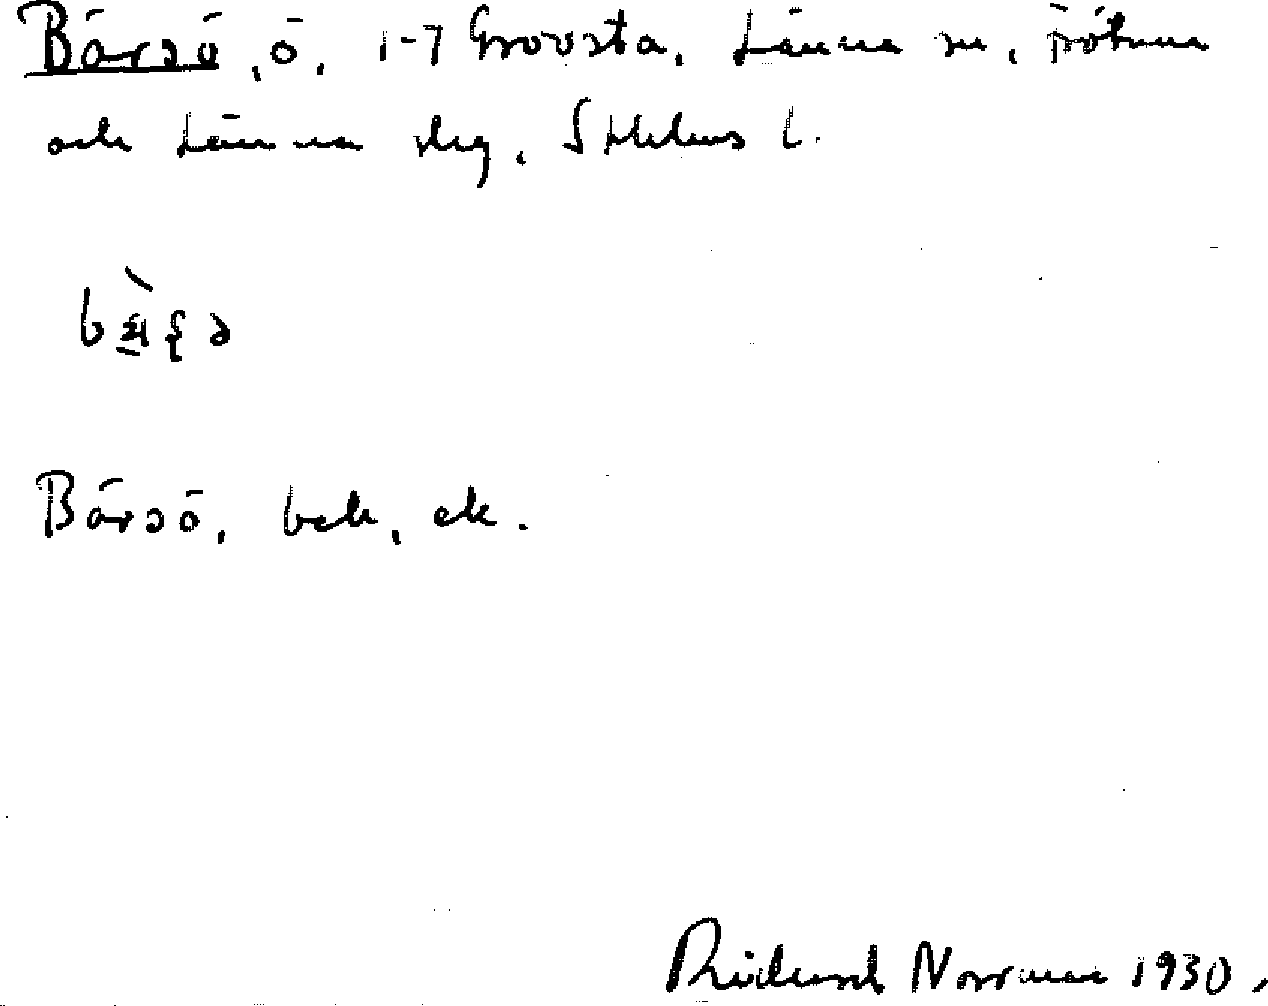 Bärsö, ö, 1-7 Grovsta, Länna sn, Frötuna
och Länna slg, Sthlms l.
Bärsö, bek, ek.
Rickard Norrman 1930.